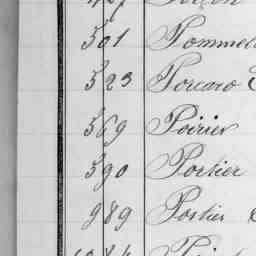 501 Pommel
523 Porcaro
569 Poirier
590 Portier
989 Postier